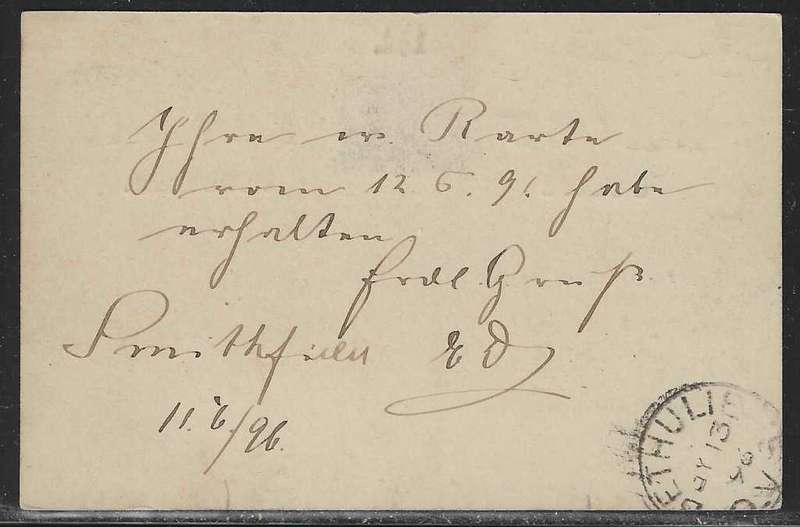 Ihre w. Karte
vom 12 6. 96 habe
erhalten
frdl. Gruß
Smithfield ED
11.6/96.
BETHULIE
13